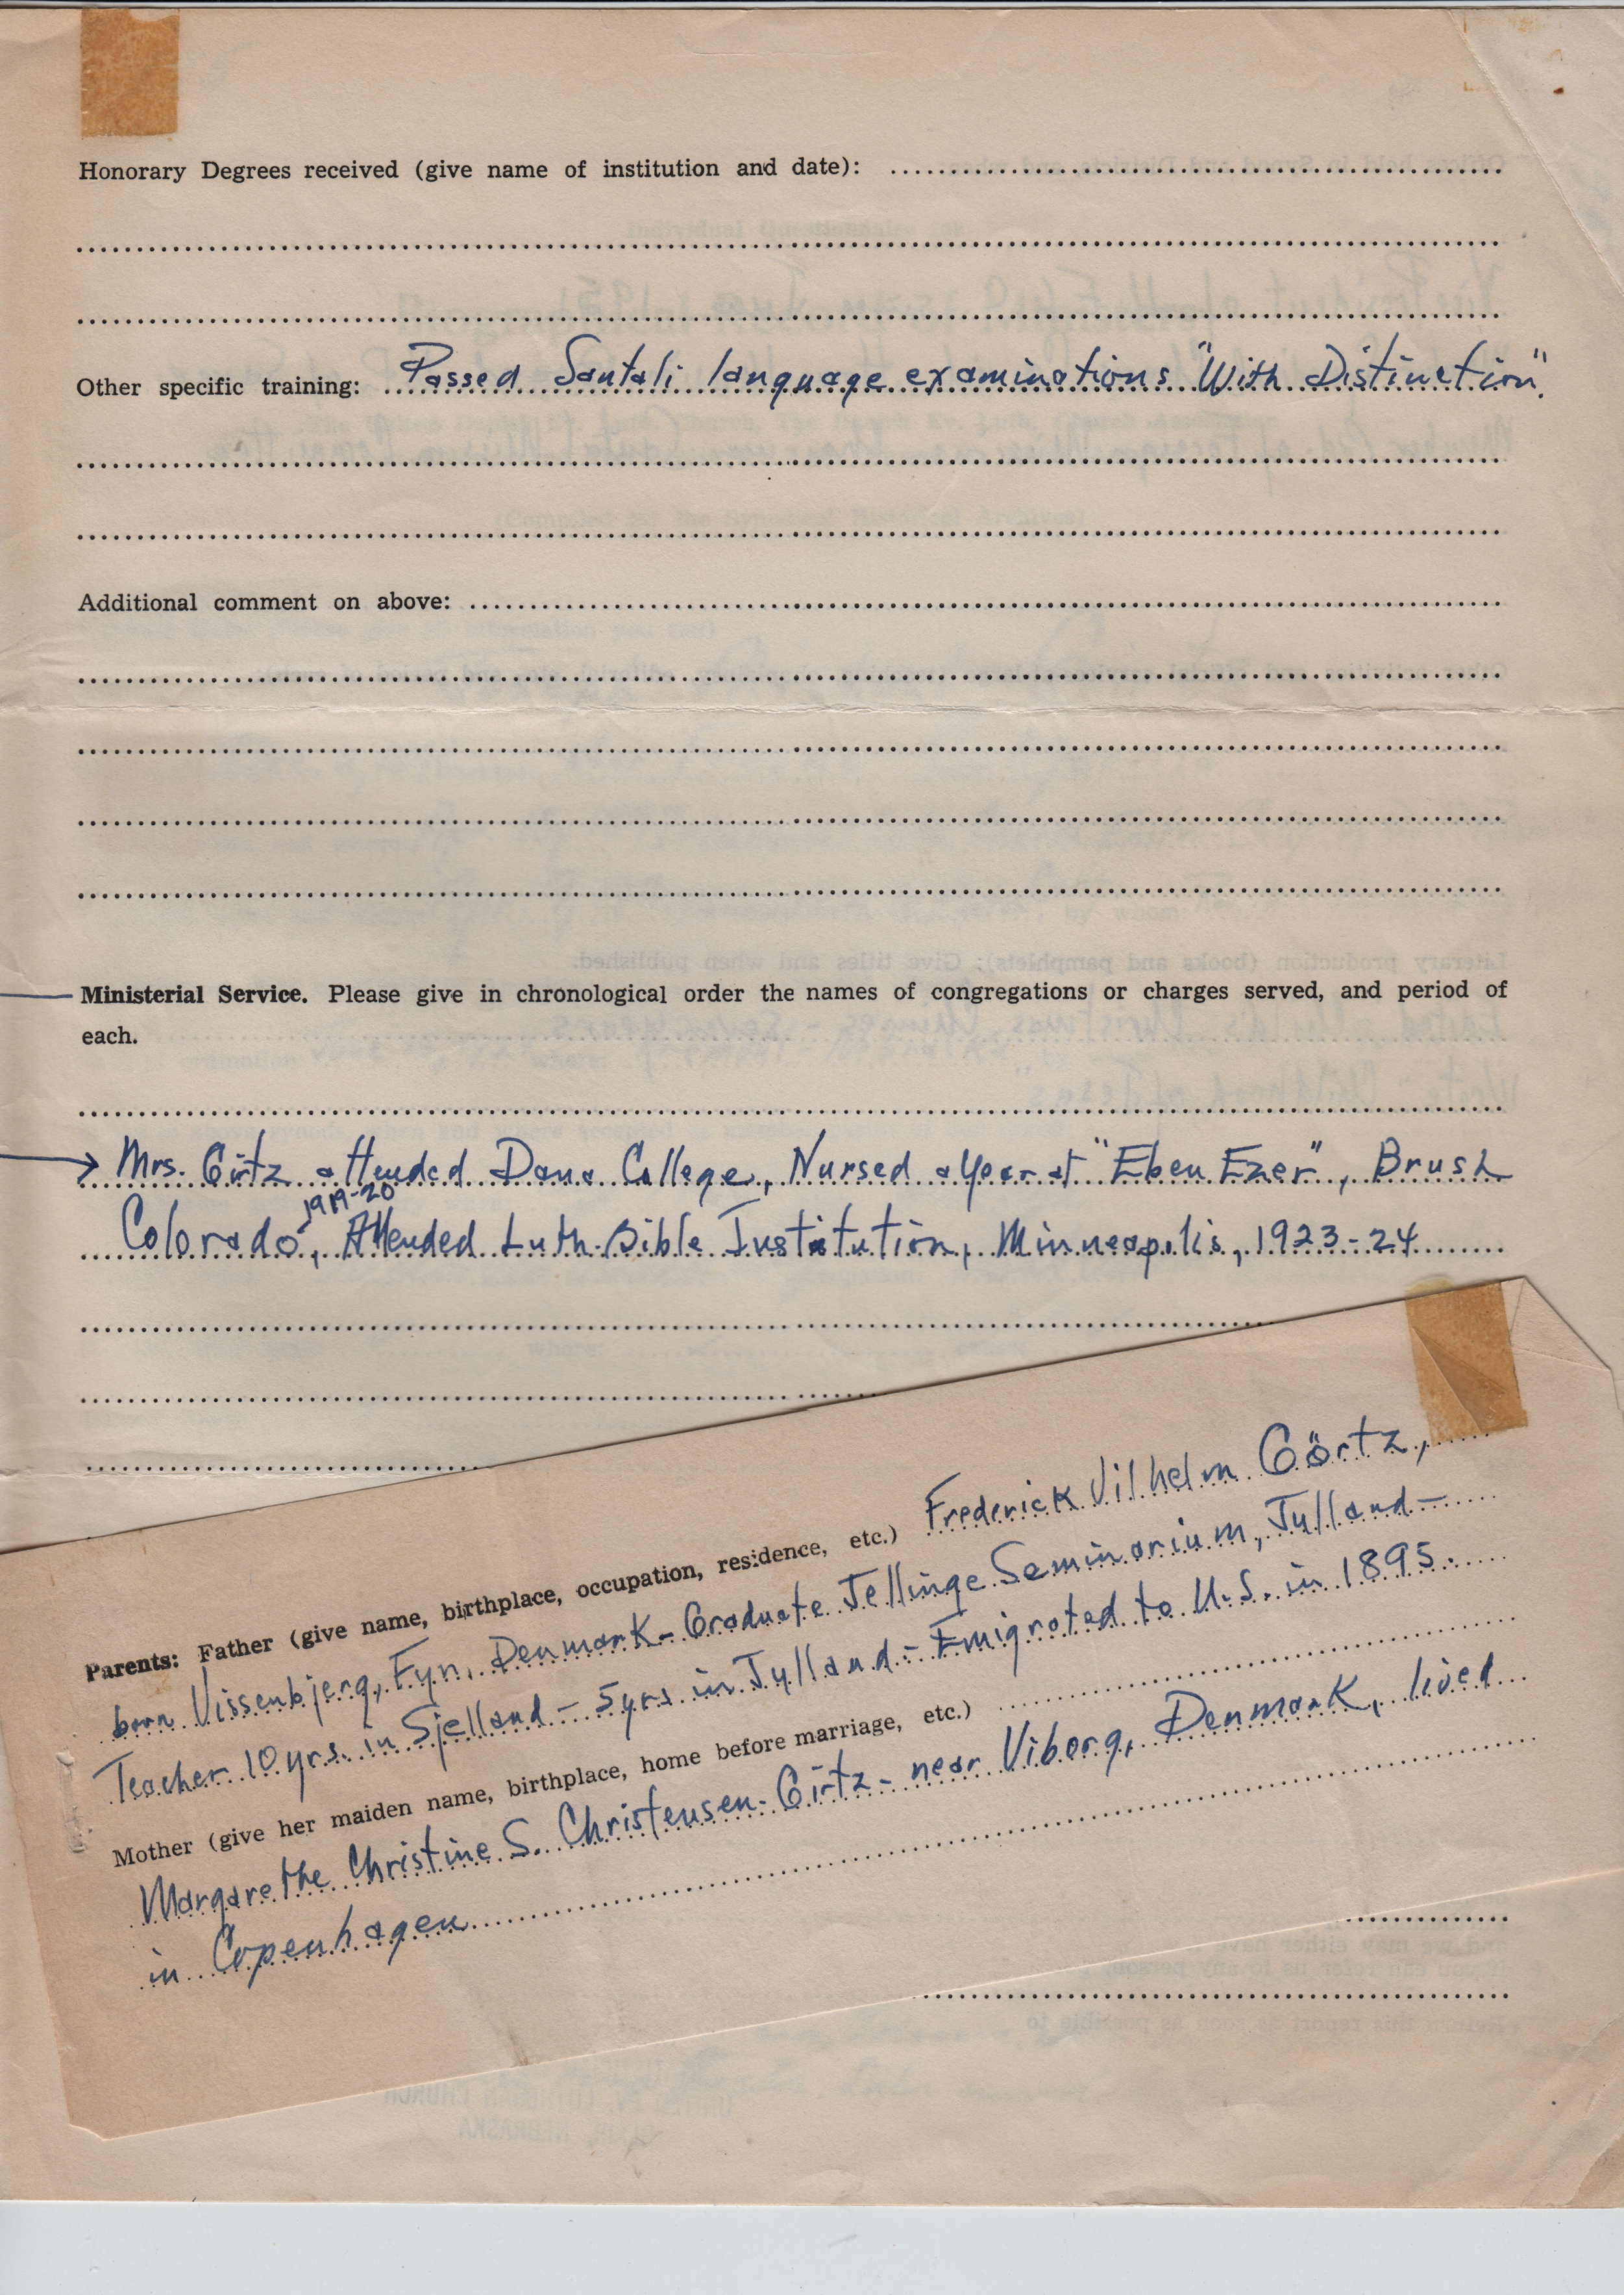 Honorary Degrees received (give name of institution and date):
Other specific training: Passed Santali language examinations "With Distinction".
Additional comment on above:
Ministerial Service. Please give in chronological order the names of congregations or charges served, and period of
each.
Mrs. Girtz attended Dana College, Nursed a year at "Eben Ezer", Brush
1919-20
Colorado, Attended Luth. Bible Institution, Minneapolis, 1923-24
Parents: Father (give name, birthplace, occupation, residence, etc.) Frederick Vilhelm Görtz,
born Vissenbjerg, Fyn, Denmark - Graduate Jellinge Seminarium, Jylland -
Teacher 10 yrs. in Sjelland - 5 yrs in Jylland - Emigrated to U.S. in 1895.
Mother (give her maiden name, birthplace, home before marriage, etc.)
Margarethe Christine S. Christensen-Girtz - near Viborg, Denmark, lived
in Copenhagen